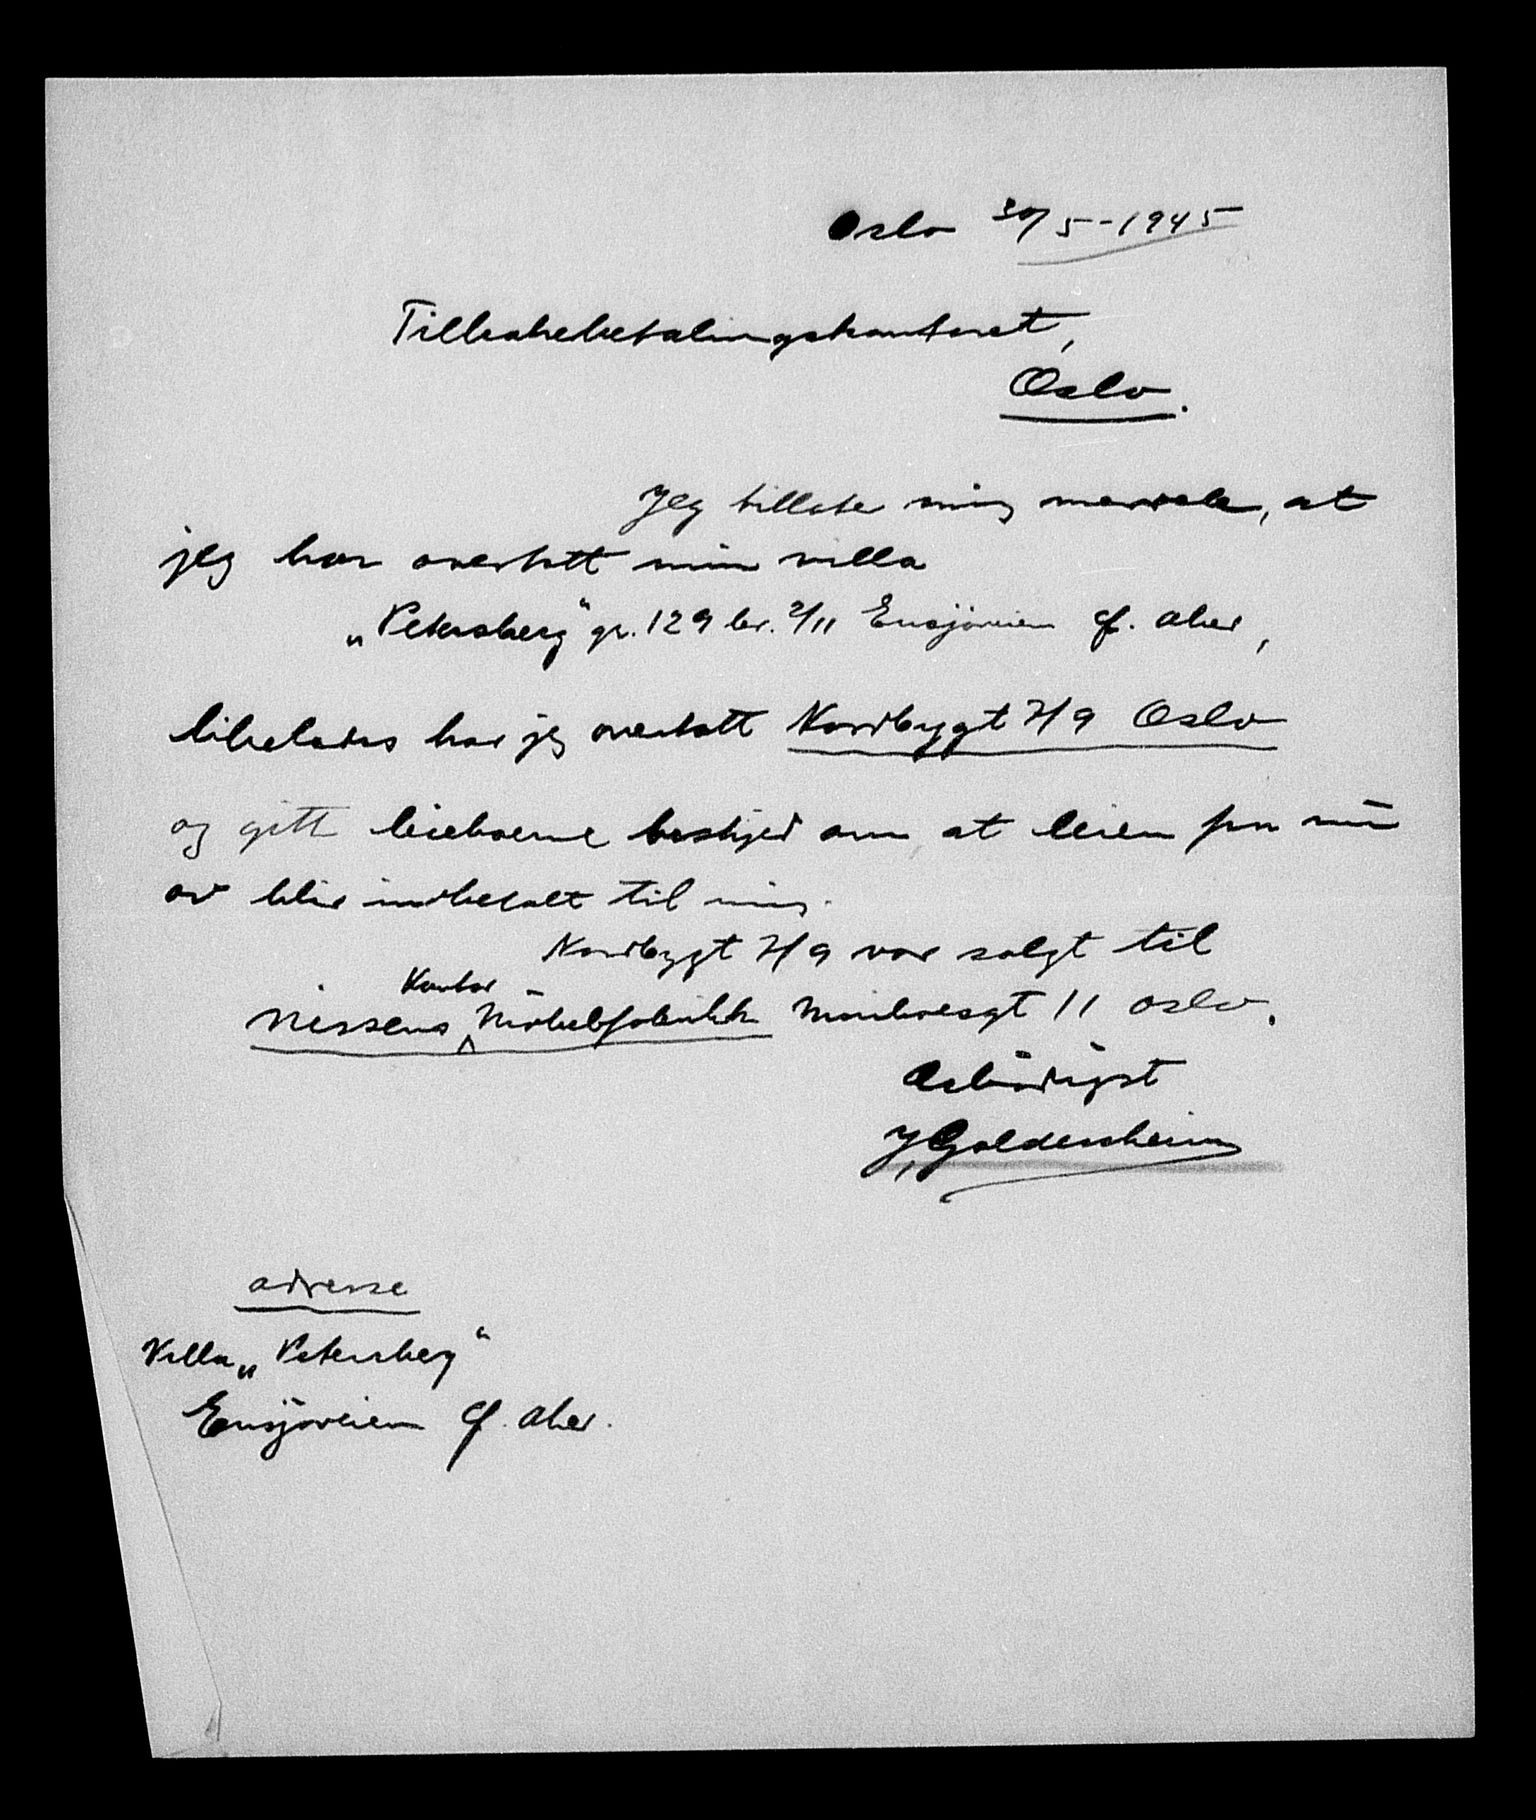 Oslo 30/5-1945
Tilbakebetalingskontoret,
Oslo.
Jeg tillater mig medele, at
jeg har overtatt min villa
„Petersberg" gr. 129 br. 2/11 Ensjøveien Ø. Aker,
likeledes har jeg overtatt Nordbygt 7/9 Oslo
og gitt leieboerne beskjed om at leien fra nu
av blir indbetalt til mig.
Nordbygt 7/9 var solgt til
Kontor
Nissens Möbelfabrikk Mariboesgt 11 Oslo.
Ærbödigst
J. Goldenheim
adresse
Villa „Petersberg"
Ensjøveien Ø. Aker.